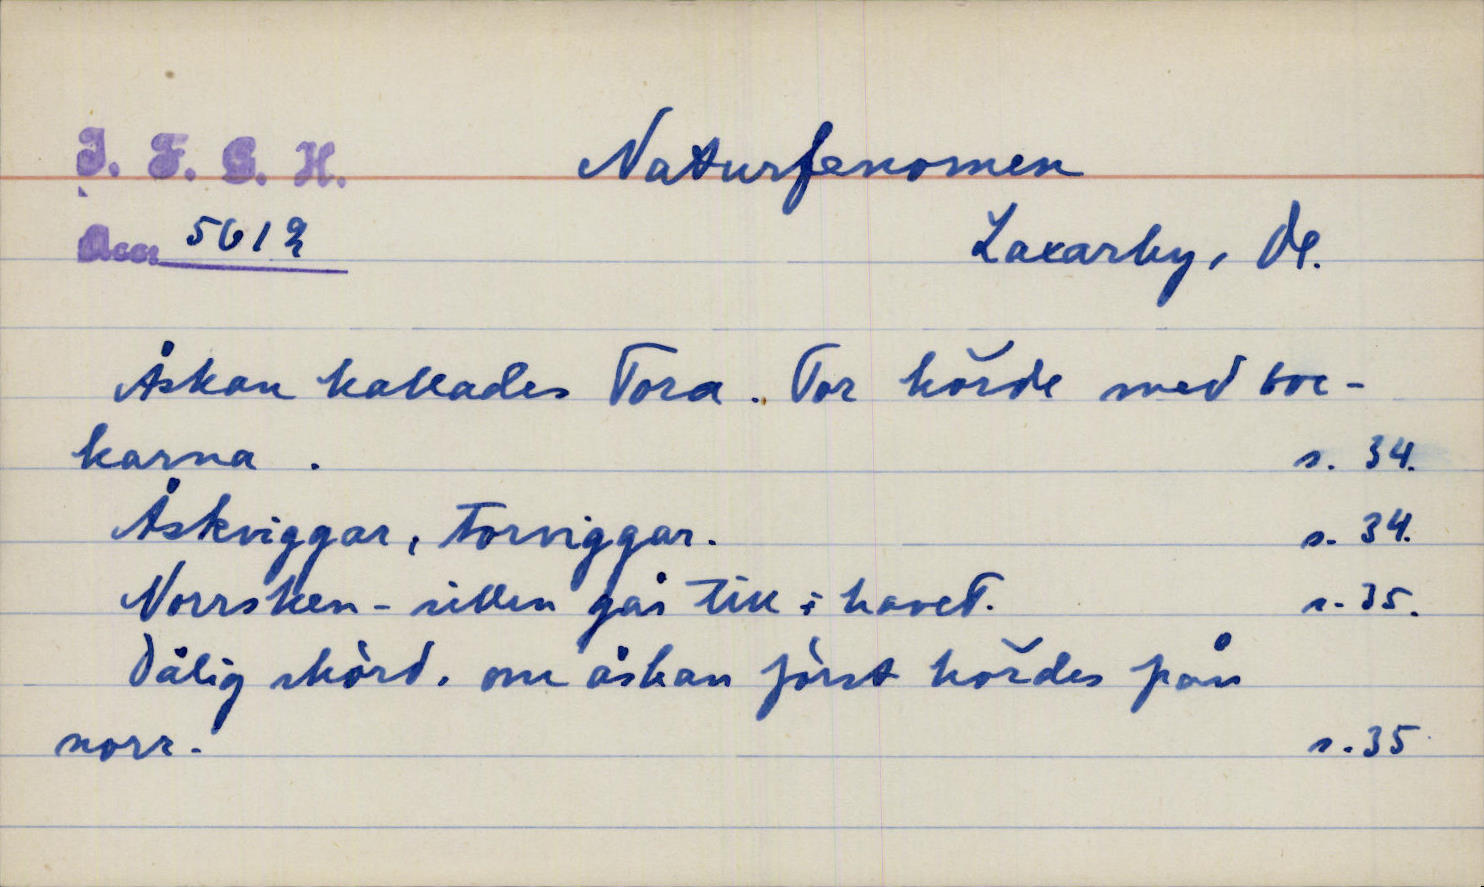 I. F. G. H.
Naturfenomen
Acc. 5612
Laxarby, Dl.
Åskan kallades Tora. Tor körde med boc-
karna. s. 34.
Åskviggar, Torviggar. s. 34.
Norrsken - sillen går till i havet. s. 35.
Dålig skörd, om åskan först hördes från
norr. s. 35